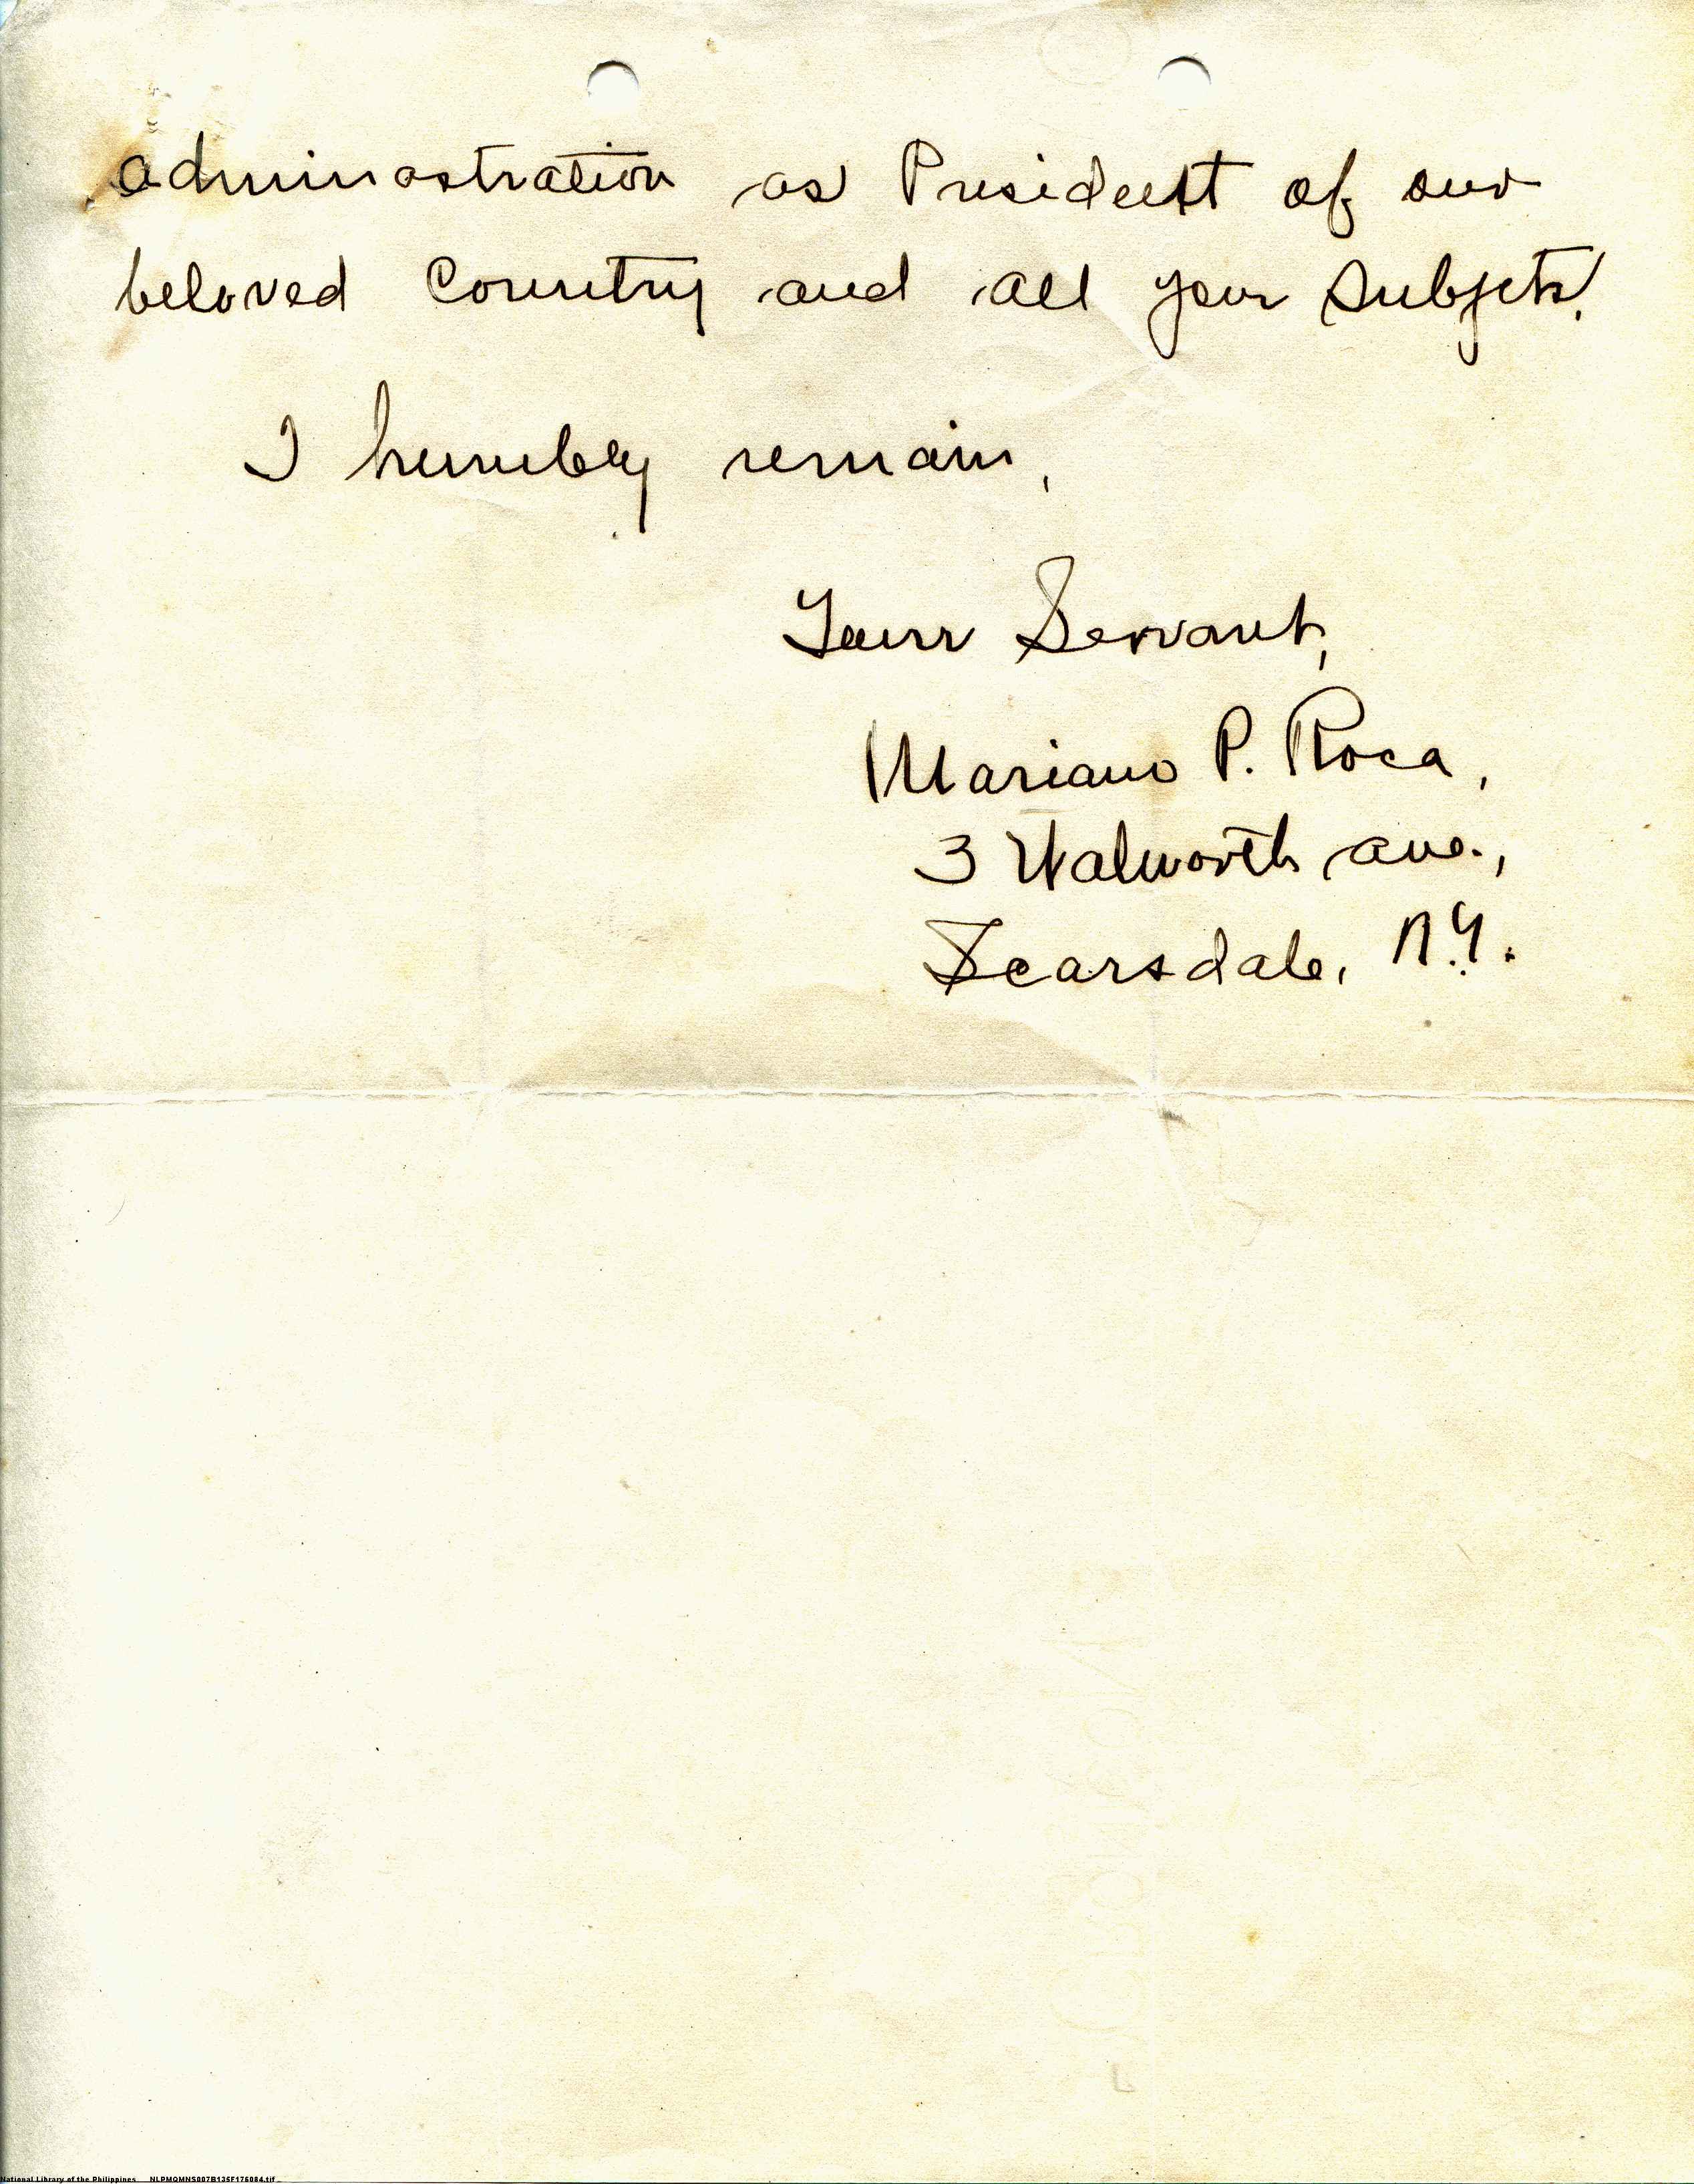 adminastration as President of our
beloved Country and all your Subjets,
I humbly remain,
Your Servant,
Mariano P. Roca,
3 Walworth ave.,
Scarsdale, N.Y.
National Library of the Philippines NLPMQMNS007B135F175084.tif